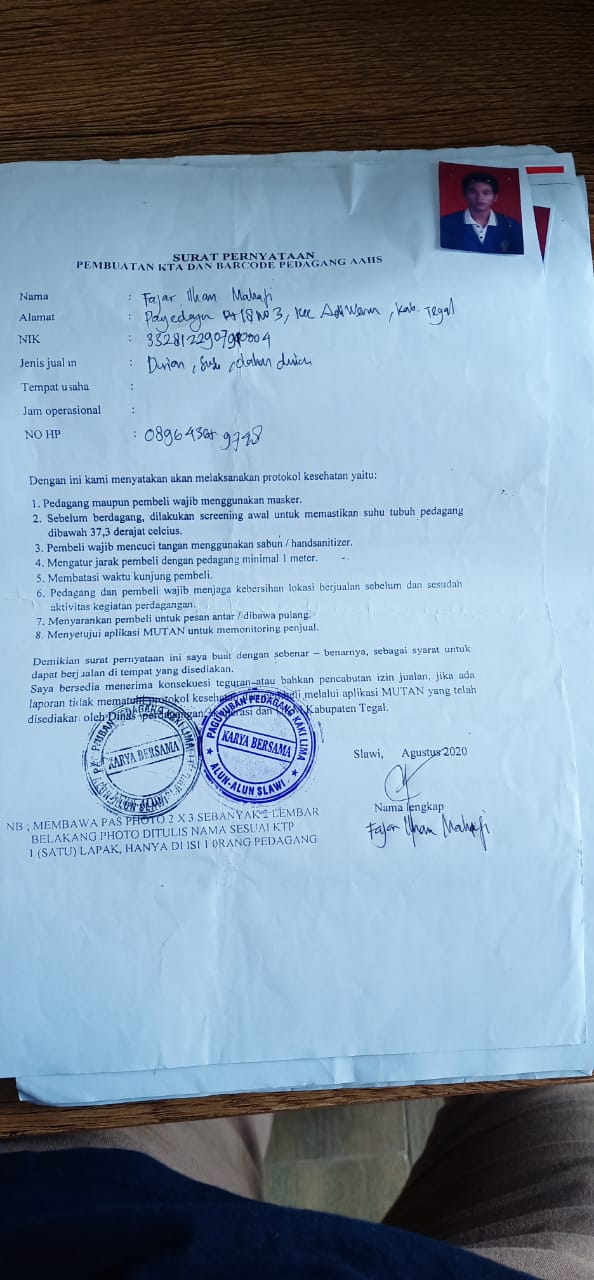 SURAT PERNYATAAN
PEMBUATAN KTA DAN BARCODE PEDAGANG AAHS
Nama : Fajar Ilham
Alamat : Rt 18 No 3, Kec Adiwerna, Kab. Tegal
NIK :
Jenis jual n : Durian, Susu,
Tempat usaha :
Jam operasional :
NO HP :
Dengan ini kami menyatakan akan melaksanakan protokol kesehatan yaitu:
1. Pedagang maupun pembeli wajib menggunakan masker.
2. Sebelum berdagang, dilakukan screening awal untuk memastikan suhu tubuh pedagang
dibawah 37,3 derajat celcius.
3. Pembeli wajib mencuci tangan menggunakan sabun / handsanitizer.
4. Mengatur jarak pembeli dengan pedagang minimal 1 meter.
5. Membatasi waktu kunjung pembeli.
6. Pedagang dan pembeli wajib menjaga kebersihan lokasi berjualan sebelum dan sesudah
aktivitas kegiatan perdagangan.
7. Menyarankan pembeli untuk pesan antar / dibawa pulang.
8. Menyetujui aplikasi MUTAN untuk memonitoring penjual.
Demikian surat pernyataan ini saya buat dengan sebenar – benarnya, sebagai syarat untuk
dapat berjualan di tempat yang disediakan.
Saya bersedia menerima konsekuesi teguran atau bahkan pencabutan izin jualan, jika ada
laporan tidak mematuhi protokol melalui aplikasi MUTAN yang telah
disediakan oleh Dinas dan Kabupaten Tegal.
KARYA BERSAMA
ALUN-ALUN SLAWI
PAGUYUBAN PEDAGANG KAKI LIMA
KARYA BERSAMA
ALUN-ALUN SLAWI
Slawi, Agustus 2020
Nama lengkap
Fajar Ilham
NB ; MEMBAWA PAS PHOTO 2 X 3 SEBANYAK 2 LEMBAR
BELAKANG PHOTO DITULIS NAMA SESUAI KTP
1 (SATU) LAPAK, HANYA DI ISI 1 0RANG PEDAGANG